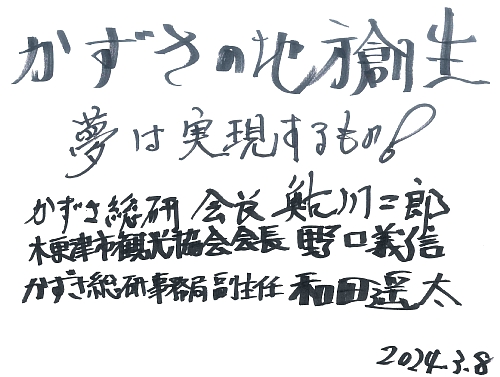 かずさの地方創生
夢は実現するもの!
かずさ総研 会長 鮎川二郎
木更津市観光協会会長 野口義信
かずさ総研事務局副主任 和田遥太
2024.3.8